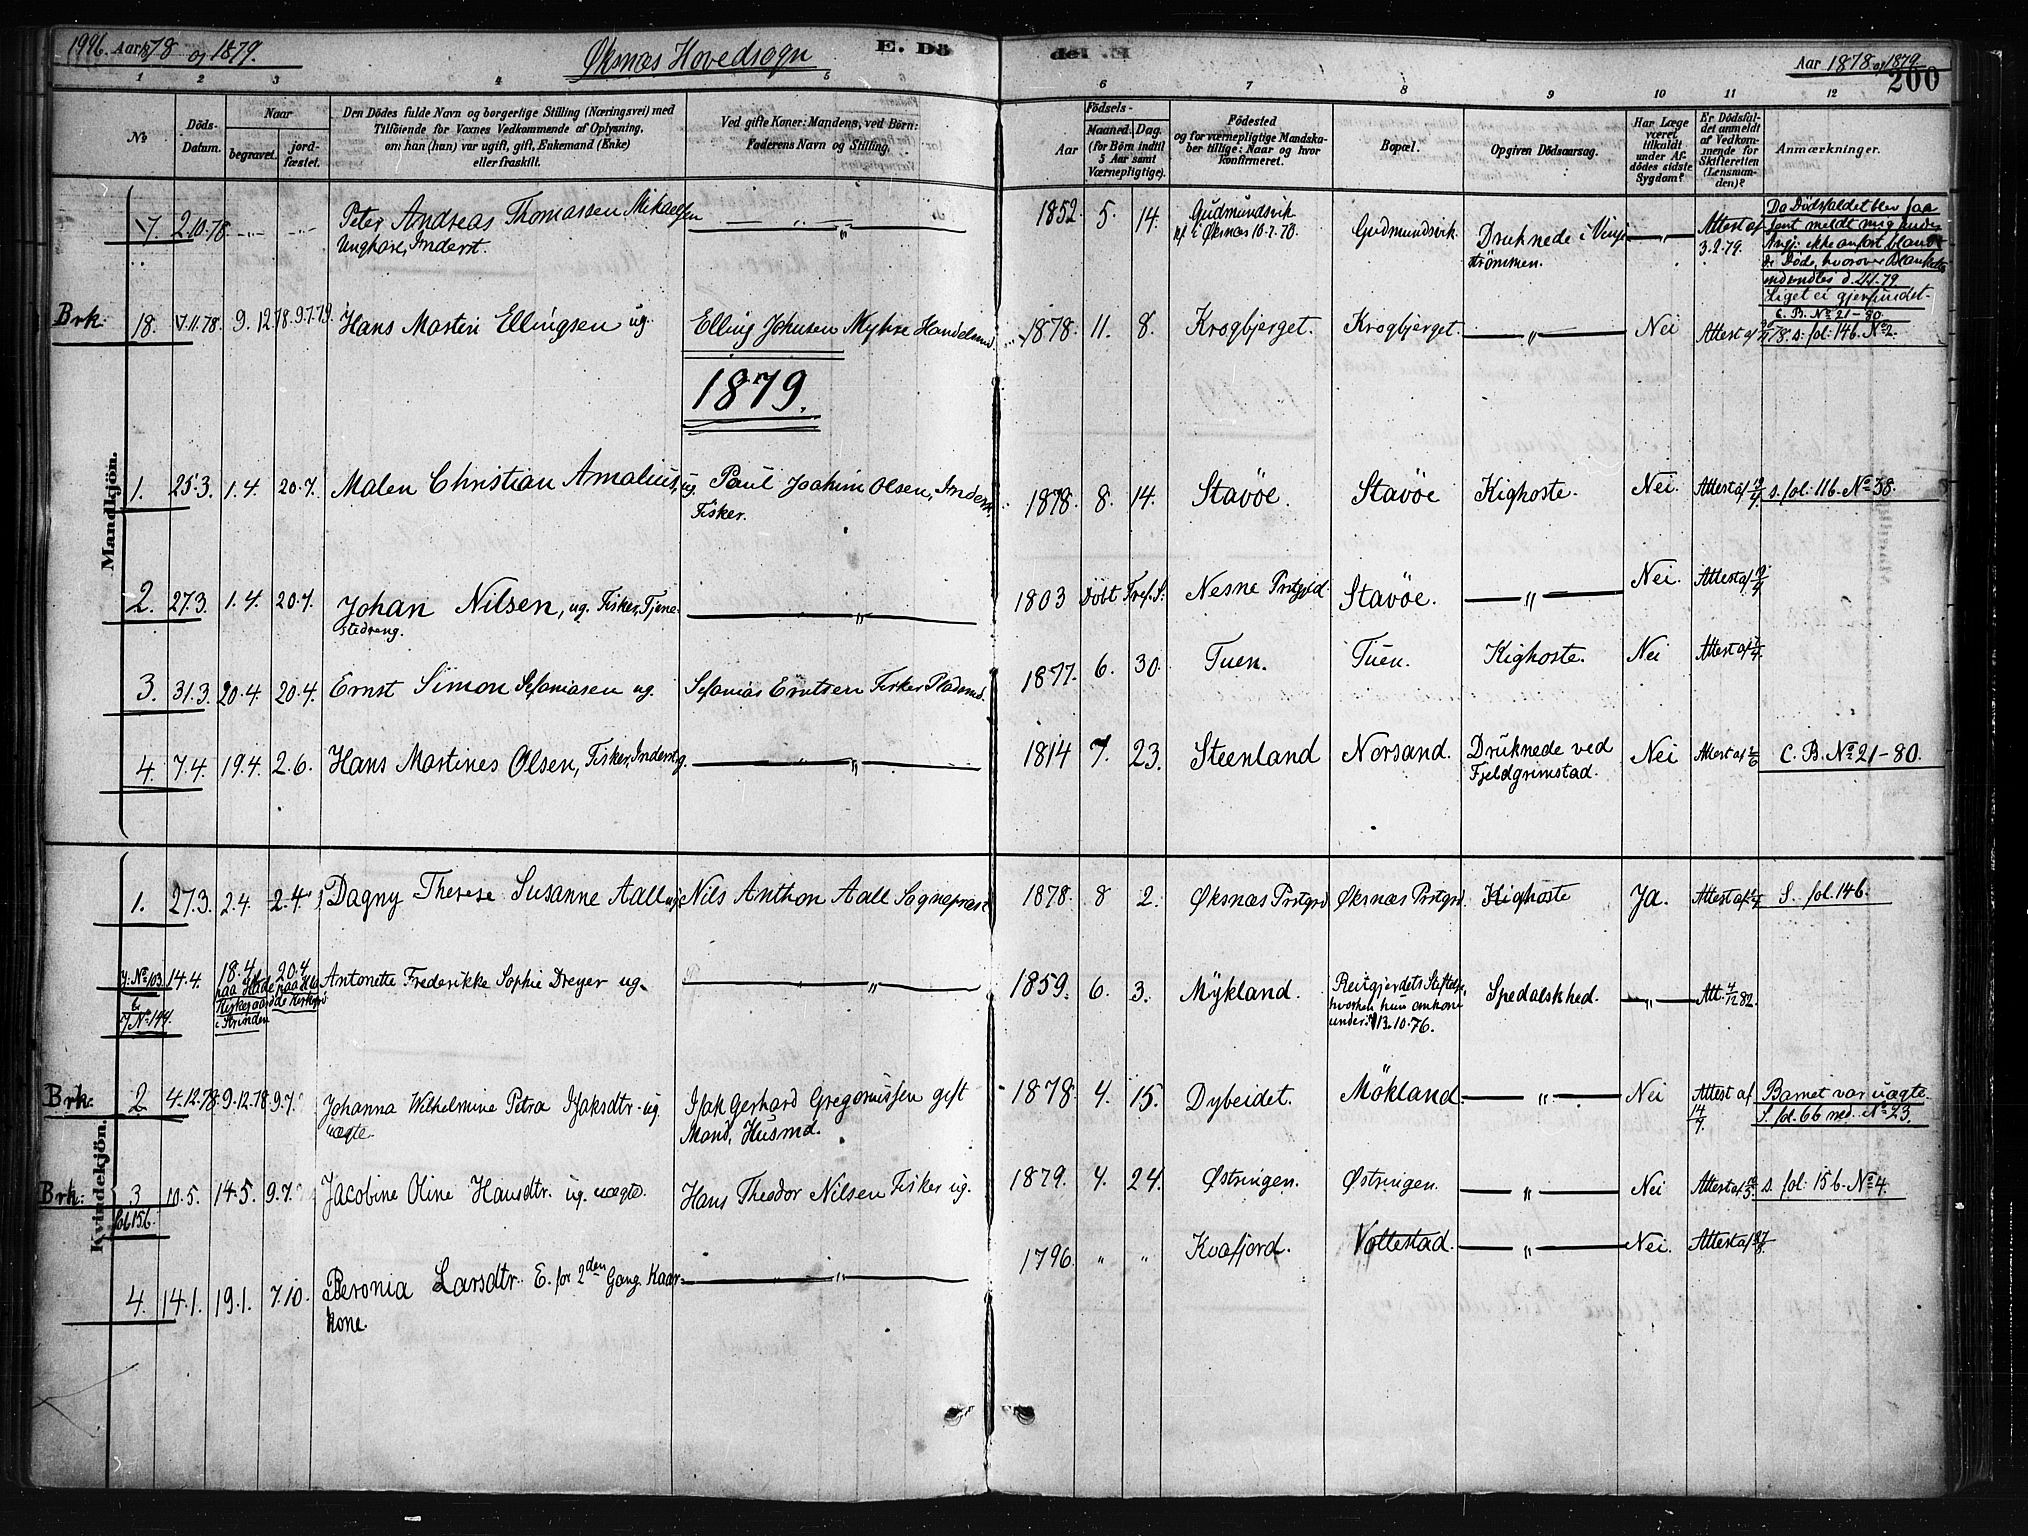 199b. Aar 1878 og 1879. Øksnæs Hovedsogn E. Dö
del M Aar 1878 og 1879
200
1 2 3 4 5 6
6 7 8 9 10 11 12
№ Döds-Datum. Naar begravet. jord-fæstet.
Den Dödes fulde Navn og borgerlige Stilling (Næringsvei) med
Tilföiende for Voxnes Vedkommende af Oplysning,
om han (hun) var ugift, gift, Enkemand (Enke)
eller fraskilt.
Ved gifte Koner: Mandens, ved Börn:
Faderens Navn og Stilling.
Födsels-
Aar Maaned. Dag.
(for Börn indtil
5 Aar samt
Værnepligtige).
Födested
og for værnepligtige Mandska-
ber tillige: Naar og hvor
Konfirmeret.
Bopæl.
Opgiven Dödsaarsag.
Har Læge
været
tilkaldt
under Af-
dödes sidste
Sygdom?
Er Dödsfal-
det anmeldt
af Vedkom-
mende for
Skifteretten
(Lensman-
den)?
Anmærkninger.
17. 2.10.78 —"— —"— Peter Andreas Thomassen Mikaelsen — " — 1852. 5. 14. Gudmundsvik Gudmundsvik. Druknede i —"— Attest af
Ungkarl, Inderst. i Øksnæs 10.7.70. strömmen. 3.2.79.
Da Dödsfaldet blev saa
sent meldt mig
ikke anfört blandt
de Döde, hvorover Blanketter
indsendtes d.
Liget ei gjenfundet.
C. B. No 21-80.
Brk: 18. 7.11.78. 9.12.78. 9.7.79. Hans Martin Ellingsen ug. Elling Johnsen Myhre Handelsmd. 1878. 11. 8. Krogbjerget. Krogbjerget. —"— Nei Attest af s. fol: 14b. No 2.
1879.
Mandkjön.
1. 25.3. 1.4. 20.7. Malen Christian Amalius, ug. Paul Joakim Olsen, Inderst 1878. 8. 14. Stavöe. Stavöe Kighoste. Nei. Attest af s. fol: 11b. No 38.
Fisker.
2. 27.3. 1.4. 20.7. Johan Nilsen, ug. Fisker, Tjene- —"— 1803 Döbt Tref. S. Nesne Prstgjld. Stavöe. —"— Nei. Attest af
stedreng.
3. 31.3. 20.4. 20.4. Ernst Simon Sefaniasen ug. Sefanias Erntsen Fisker Pladsmd. 1877. 6. 30. Tuen. Tuen. Kighoste. Nei Attest af
4. 7.4. 19.4. 2.6. Hans Martines Olsen, Fisker, Inderst g. —"— 1814 7. 23. Steenland Norsand. Druknede ved Nei Attest af C. B. No 21-80.
Fjeldgrimstad.
Kvindekjön.
1. 27.3. 2.4. 2.4 Dagny Therese Susanne Aall ug. Nils Anthon Aall Sognepræst 1878. 8 2. Øksnæs Prstgrd Øksnæs Prstgrd. Kighoste Ja. Attest af S. fol. 14b.
J: No 103 14.4. 18.4 20.4 Antonette Frederikke Sophie Dreyer ug. —"— 1859. 6. 3. Mykland. Reitgjerdets Stiftelse, Spedalskhed. —"— Att. 4/12 82.
& J No 144. paa Hlade Kirkegaard i Strinden hvorhen hun ankom
under 13.10.76.
Brk: 2 4.12.78 9.12.78 9.7. Johanna Wilhelmine Petra Isaksdtr. ug. Isak Gerhard Gregoriussen gift 1878. 4. 15. Dybeidet. Mökland —"— Nei Attest af 14/7. Barnet var uægte.
uægte. Mand, Husmd. S. fol. 6b med. No 23.
Brk: 3 10.5. 14.5. 9.7. Jacobine Oline Hansdtr. ug. uægte. Hans Theodor Nilsen Fisker ug. 1879. 4. 24. Østringen. Østringen. —"— Nei Attest af s. fol: 15b. No 4.
fol 15b.
4. 14.1. 19.1. 7.10. Beronia Larsdtr. E. for 2den Gang. Kaar- —"— 1796. " " Kvafjord. Vottestad. —"— Nei. Attest af
kone.